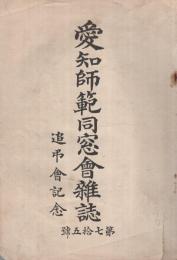 愛知師範同窓會雜誌
第七拾五號
追弔會記念